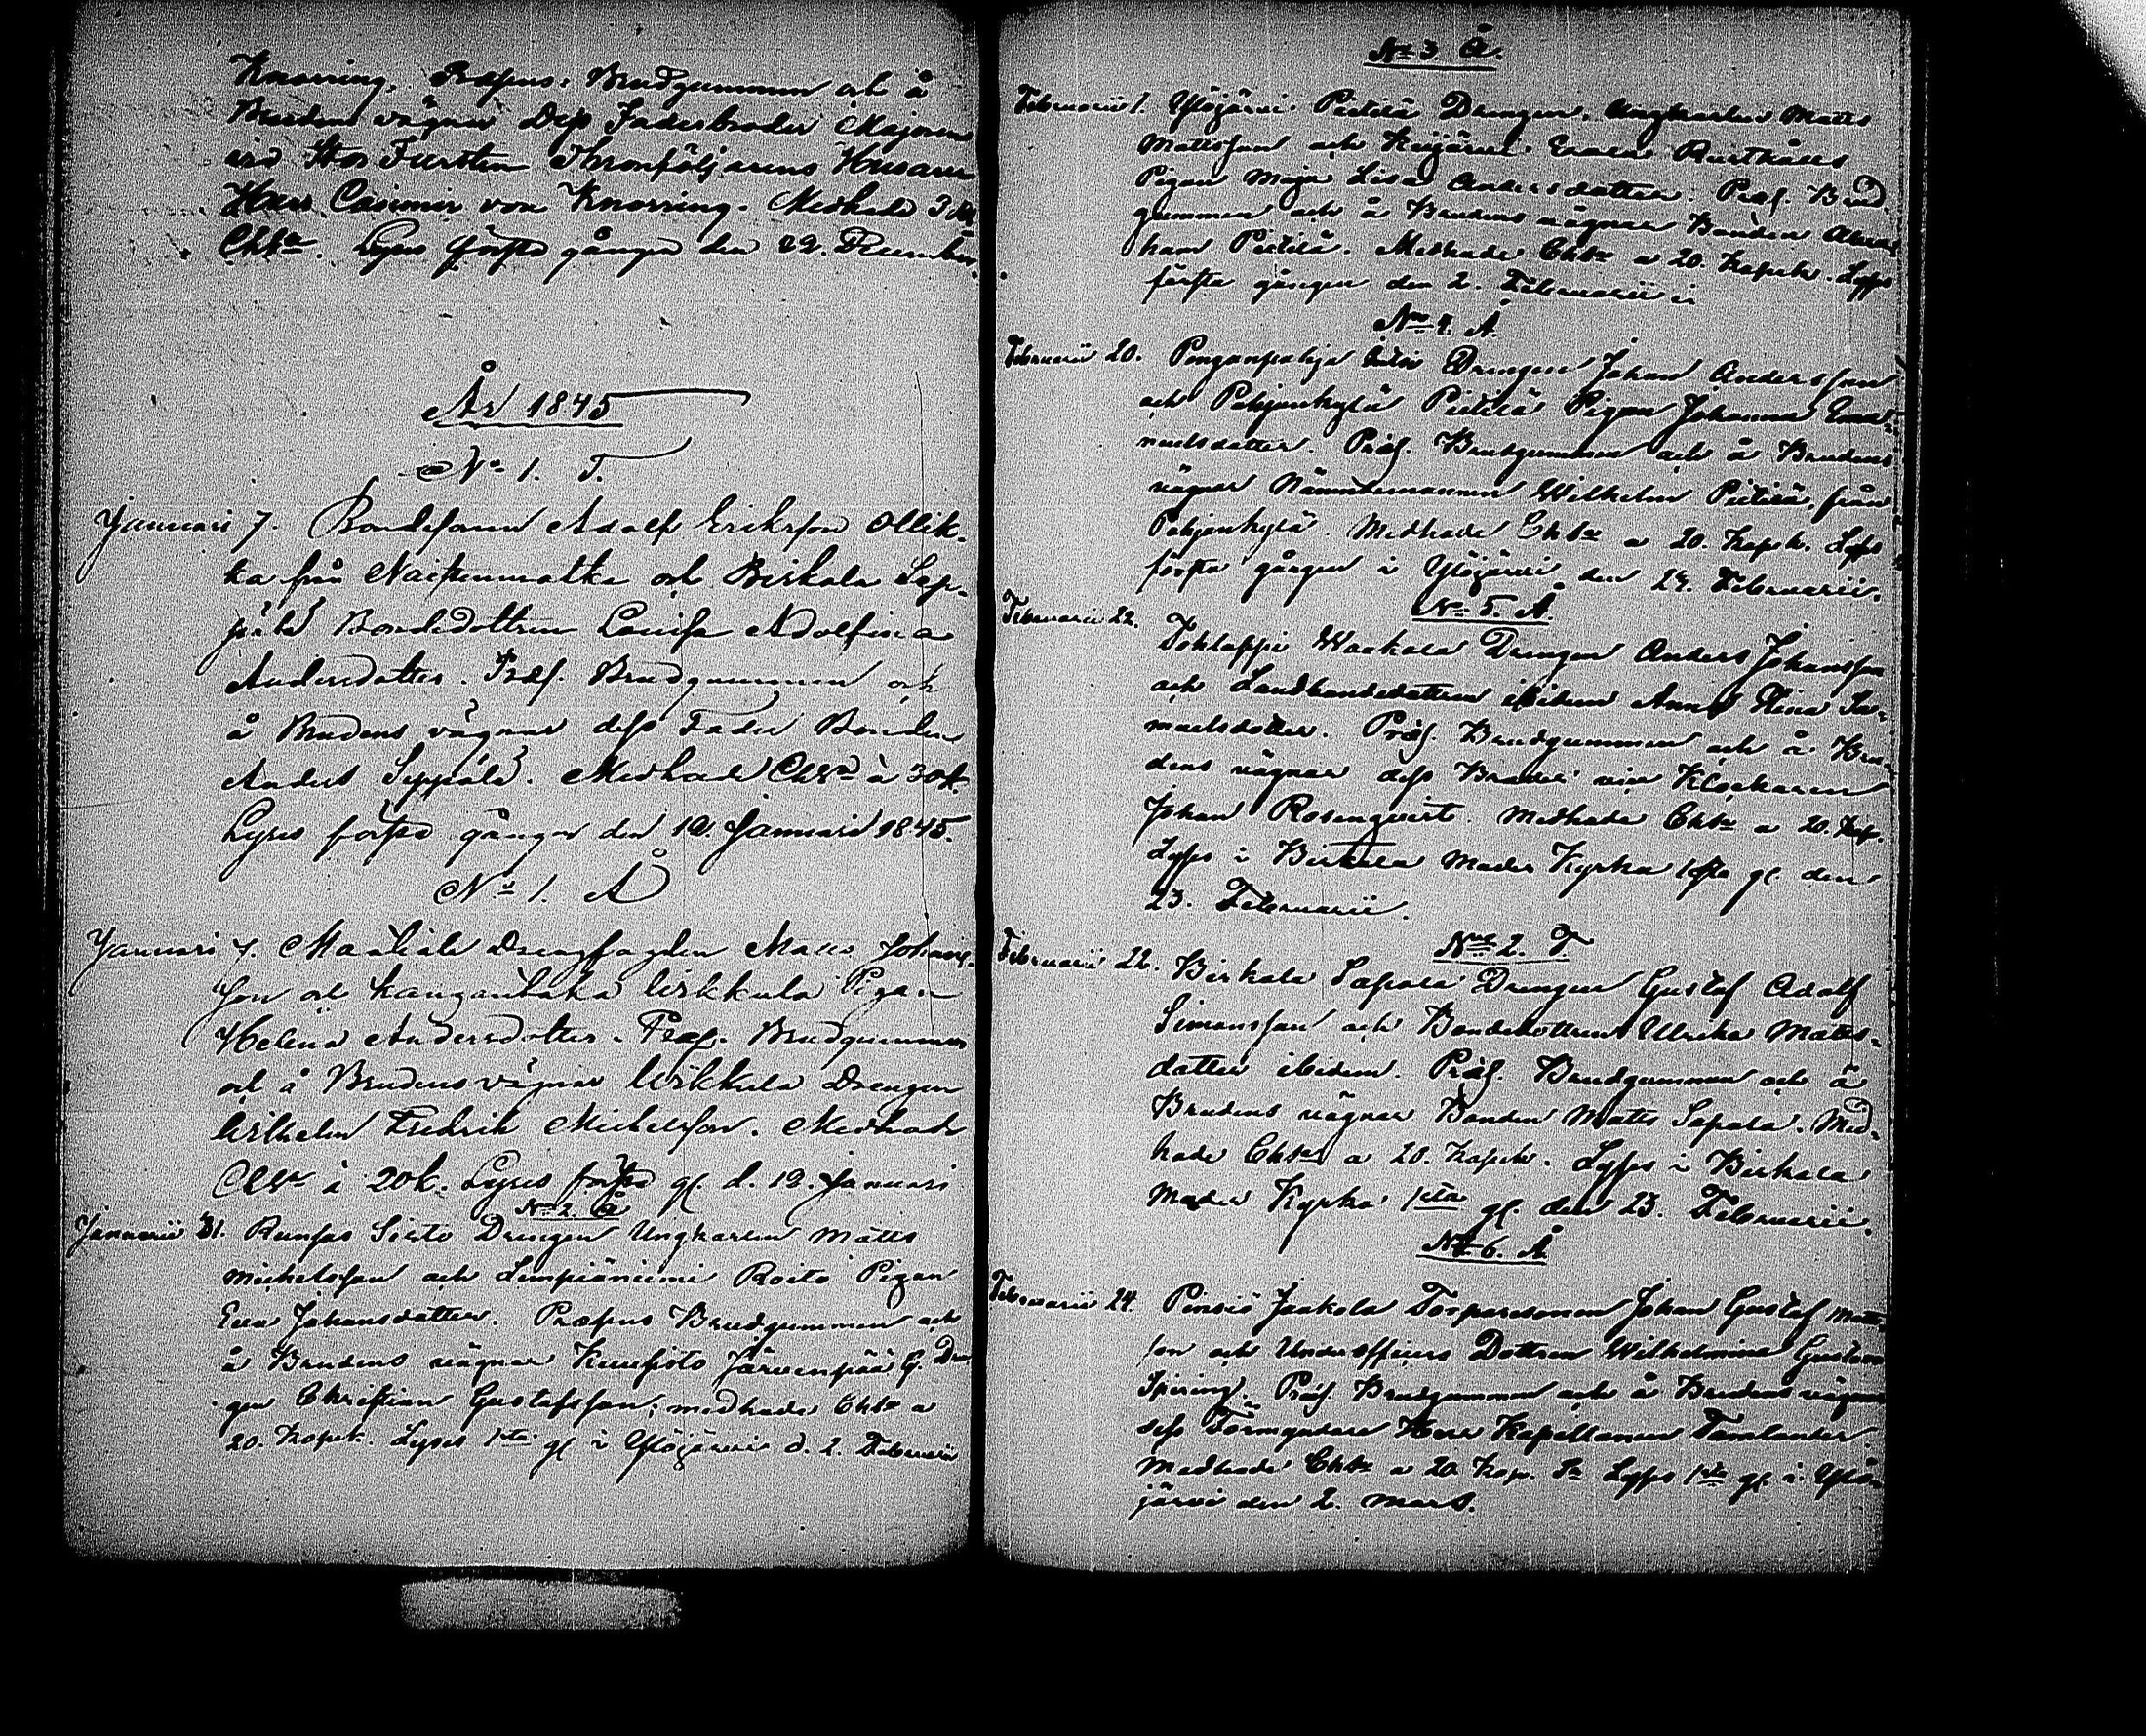 Knorring. Præsens: Brudgummen och å
Brudens vägnar Dess Faderbroder Majoren
vid Stor Fursten Thronföljarens Husarer
Herr Casimir von Knorring. Medhade 3 R
Chtæ. Lyses första gången den 22. December.
År 1845
No 1. T.
Januari 7. Bondesonen Adolf Eriksson Ollik-
ka från Naistenmatka och Birkala Sep-
pälä Bondedottren Lovisa Adolfina
Andersdotter. Præs. Brudgummen och
å Brudens vägnar dess Fader Bonden
Anders Seppälä. Medhade Chtæ à 30 k.
Lyses första gången den 12. Januari 1845.
No 1. Å
Januari 7. Mattila Drengfogden Matts Johans-
son och Kangantaka Uikkula Pigan
Helena Andersdotter. Præs. Brudgummen
och å Brudens vägnar Uikkula Drengen
Wilhelm Fredrik Michelsson. Medhade
Chtæ à 20 k. Lyses första g. d. 12. Januari
No 2. Å
Januarii 31. Runsas Sieto Drengen Ungkarlen Matts
Michelsson och Lempiäniemi Roito Pigan
Eva Johansdotter. Præsens Brudgummen och
å Brudens vägnar Kuusisto Järvenpää G. Dren
gen Christian Gustafsson; medhade Chtæ a
20. Kopek. Lyses 1sta g. i Ylöjärvi d. 2. Februarii
No 3 Å.
Februarii 1. Ylöjärvi Pietilä Drengen, Ungkarlen Matts
Mattsson och Keijärvi Erola Rusthålls
Pigan Maja Lisa Andersdotter. Præs. Brud-
gummen och å Brudens vägnar Bonden Abra-
ham Pietilä. Medhade Chtæ a 20. Kopek. Lyses
första gången den 2. Februarii
No 4. Å
Februarii 20. Drengen Johan Andersson
och Pohjankylä Pietilä Pigan Johanna Ema-
nuelsdotter. Præs. Brudgummen och å Brudens
vägnar Nämndemannen Wilhelm Pietilä, från
Pohjankylä. Medhade Chtæ a 20. Kopek. Lyses
första gången i Ylöjärvi den 24. Februarii.
No 5. Å.
Februarii 22. Tohloppi Waakala Drengen Anders Johansson
och Landbondedottren ibidem Anna Stina Sa-
muelsdotter. Præs. Brudgummen och å Bru-
dens vägnar dess Broder vice Klockaren
Johan Rosenqvist. Medhade Chtæ a 20. Kop.
Lyses i Birkala Moder Kyrka 1sta g. den
23. Februarii.
No 2. T.
Februarii 22. Birkala Sapala Drengen Gustaf Adolf
Simonsson och Bondedottren Ulrika Matts-
dotter ibidem. Præs. Brudgummen och å
Brudens vägnar Bonden Matts Sapala. Med-
hade Chtæ a 20. Kopek. Lyses i Birkala
Moder Kyrka 1sta g. den 23. Februarii.
No 6. Å
Februarii 24. Pinsiö Jaakola Torparesonen Johan Gustaf Matts-
son och Underofficers Dottren Wilhelmina Gustava
Spiring. Præs. Brudgummen och å Brudens vägnar
dess Förmyndare Herr Kapellanen Tamlander.
Medhade Chtæ a 20. Kop. Sr Lyses 1sta g. i Ylö-
järvi den 2. Mars.